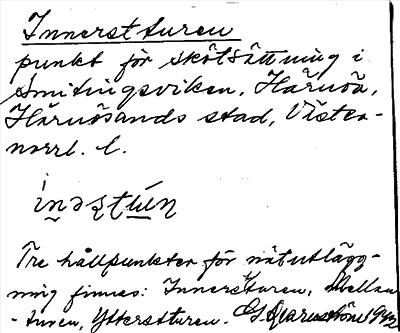 Innerstturen
punkt för skötsättning i
Smitingsviken, Härnön,
Härnösands stad, Väster-
norrl. l.
Tre hållpunkter för nätutlägg-
ning finnas: Innerstturen, Mellan
-turen, Ytterstturen.